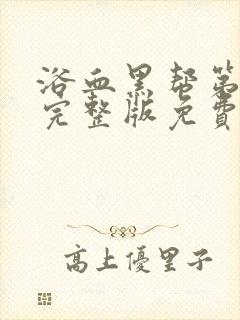 浴血黑帮第
完整版免費
高上優里子